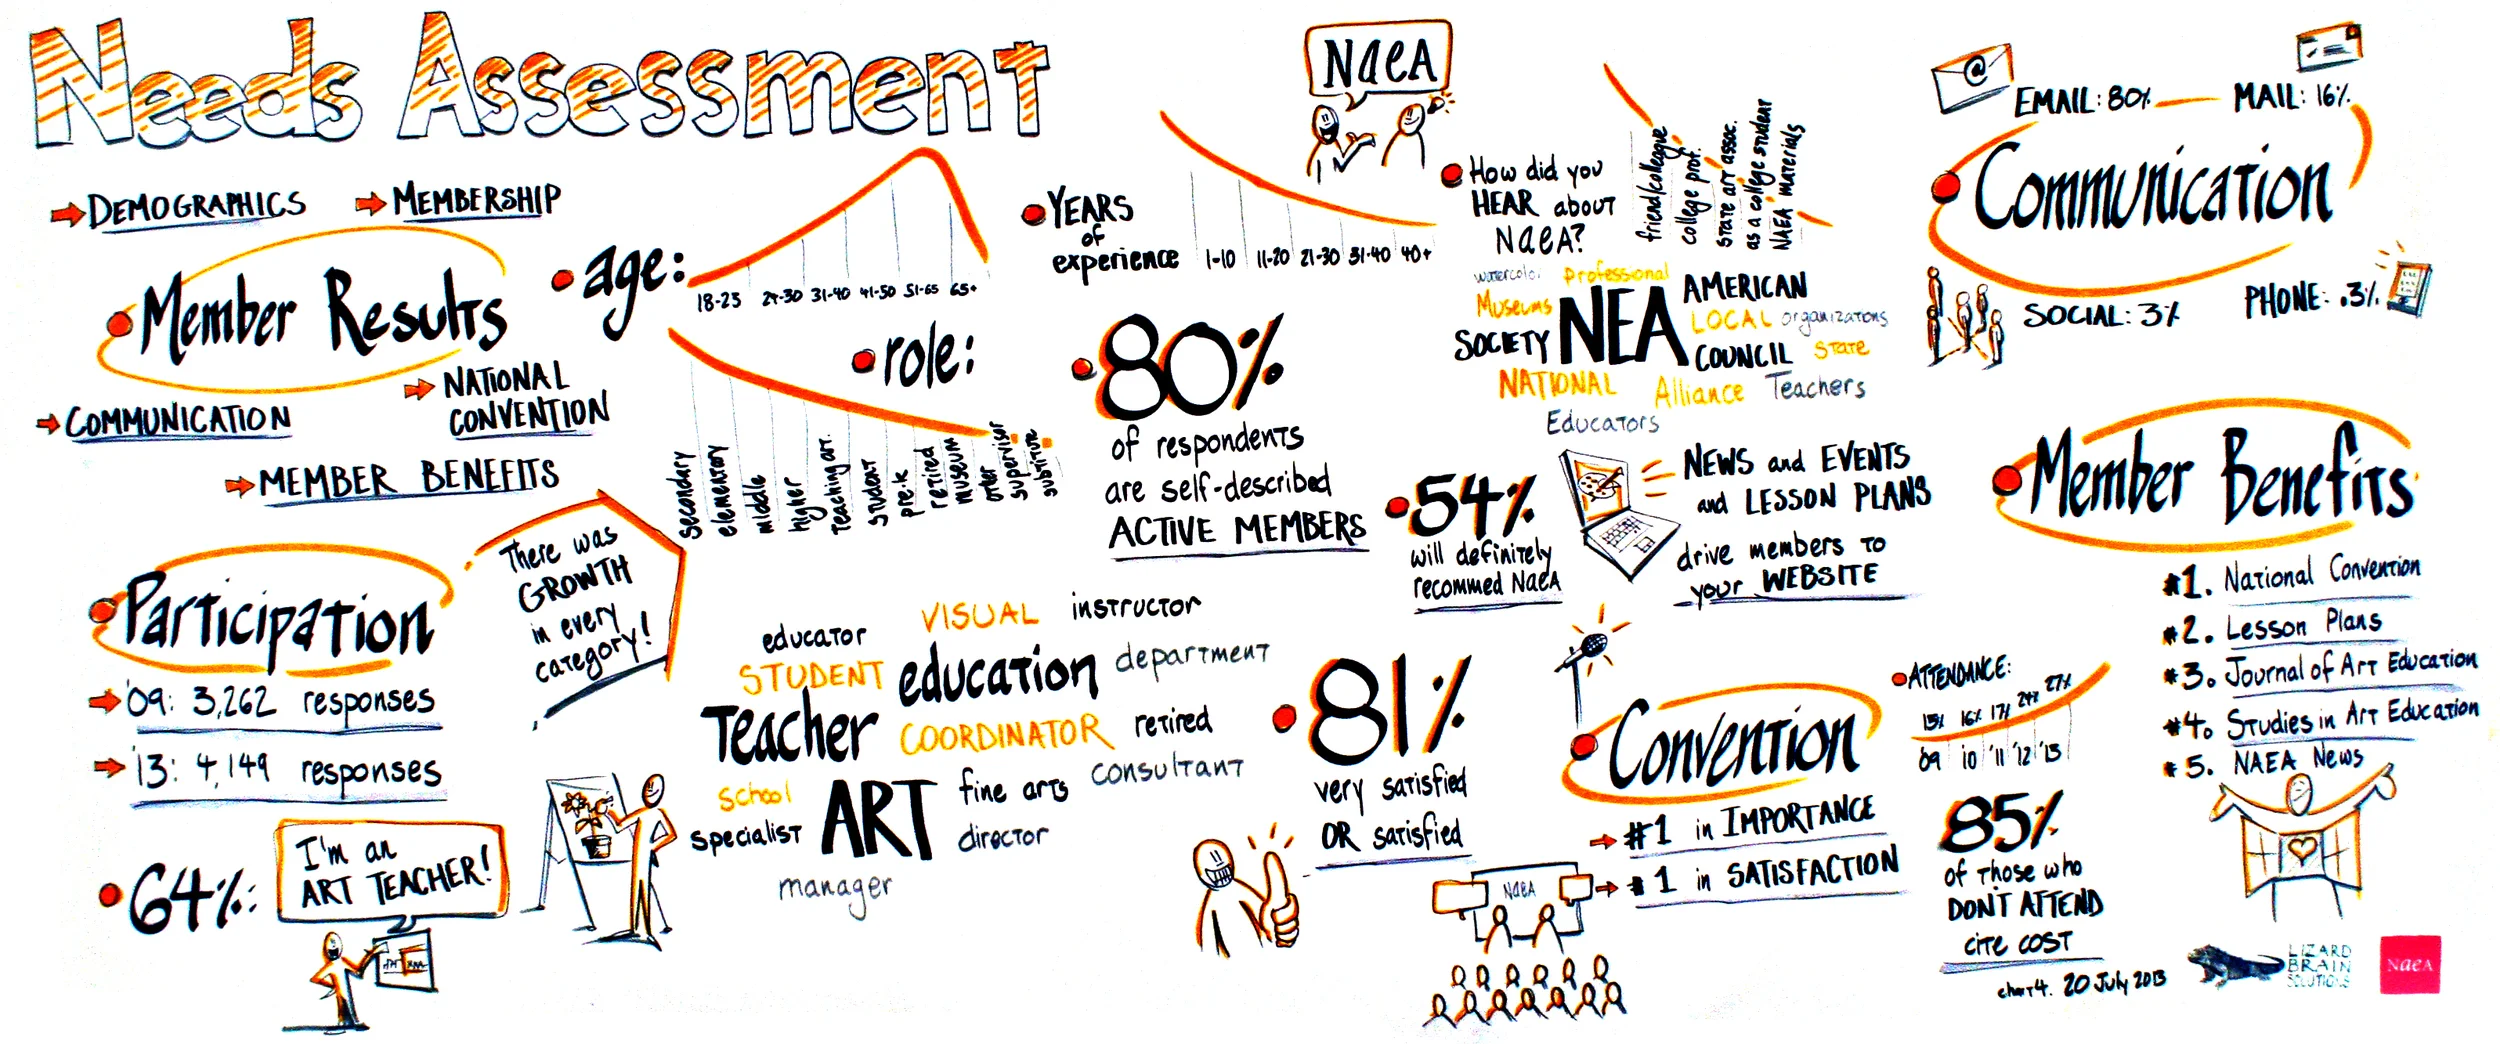 Needs Assessment
DEMOGRAPHICS
MEMBERSHIP
Member Results
NATIONAL
CONVENTION
COMMUNICATION
MEMBER BENEFITS
age:
18-23
24-30
31-40
41-50
51-65
65+
role:
secondary
elementary
middle
higher
teaching art.
student
pre-k
retired
museum
other
supervisor
substitute
Participation
'09: 3,262 responses
'13: 4,149 responses
There was
GROWTH
in every
category!
64%:
I'm an
ART TEACHER!
educator
VISUAL
instructor
STUDENT
education
department
Teacher
COORDINATOR
retired
school
ART
fine arts
consultant
specialist
director
manager
NaeA
YEARS
of
experience
1-10
11-20
21-30
31-40
40+
80%
of respondents
are self-described
ACTIVE MEMBERS
How did you
HEAR about
NaeA?
friend/colleague
college prof.
state art assoc.
as a college student
NAEA materials
watercolor
professional
Museums
NEA
AMERICAN
LOCAL
organizations
SOCIETY
COUNCIL
State
NATIONAL
Alliance
Teachers
Educators
54%
will definitely
recommed NaeA
NEWS and EVENTS
and LESSON PLANS
drive members to
your WEBSITE
81%
very satisfied
OR satisfied
NaeA
Convention
#1 in IMPORTANCE
#1 in SATISFACTION
ATTENDANCE:
15% 16% 17% 24% 27%
'09 '10 '11 '12 '13
85%
of those who
DON'T ATTEND
cite COST
EMAIL: 80%
MAIL: 16%
Communication
SOCIAL: 3%
PHONE: .3%
Member Benefits
#1. National Convention
#2. Lesson Plans
#3. Journal of Art Education
#4. Studies in Art Education
#5. NAEA News
chart 4. 20 July 2013
LIZARD
BRAIN
SOLUTIONS
NaeA